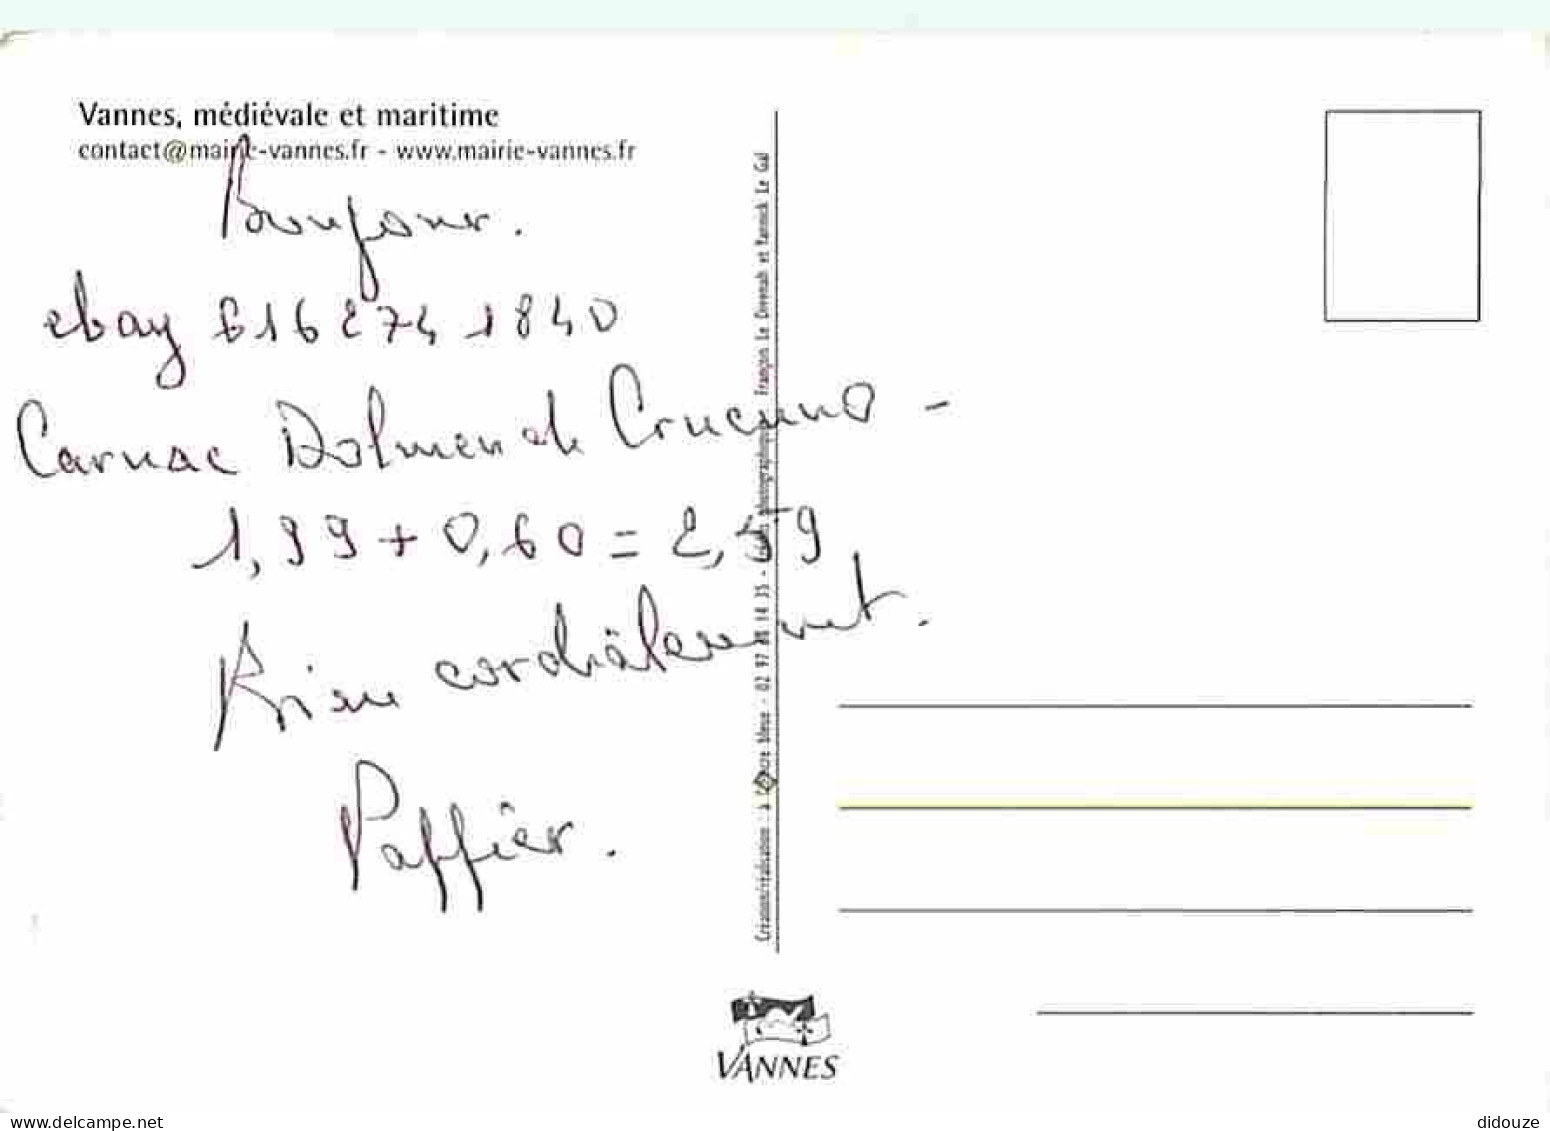 Vannes, médiévale et maritime
contact@mairie-vannes.fr - www.mairie-vannes.fr
Bonjour.
ebay 6162741840
Carnac Dolmen de Crucuno -
1,99 + 0,60 = 2,59
Bien cordialement.
Paffier.
Création/réalisation : à bleue - 02 97 14 35 - Crédits photographiques François Le Divenah et Yannick Le Gal
VANNES
www.delcampe.net
didouze